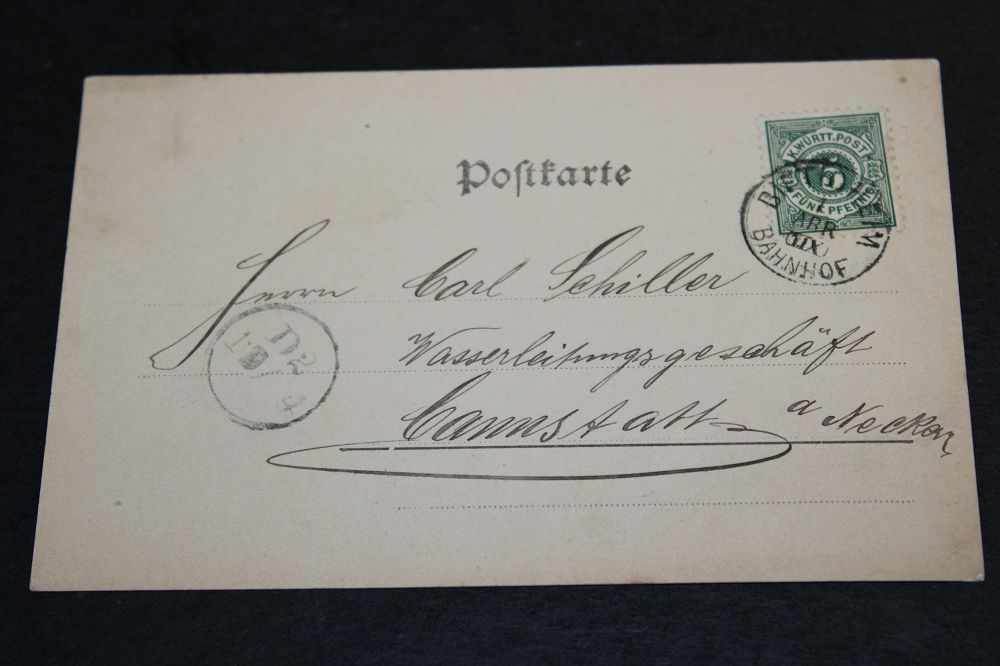 Postkarte
K. WÜRTT. POST
5
FÜNF PFENNIG
BAHNHOF
Herrn Carl Schiller
Wasserleitungsgeschäft
Cannstatt a Neckar